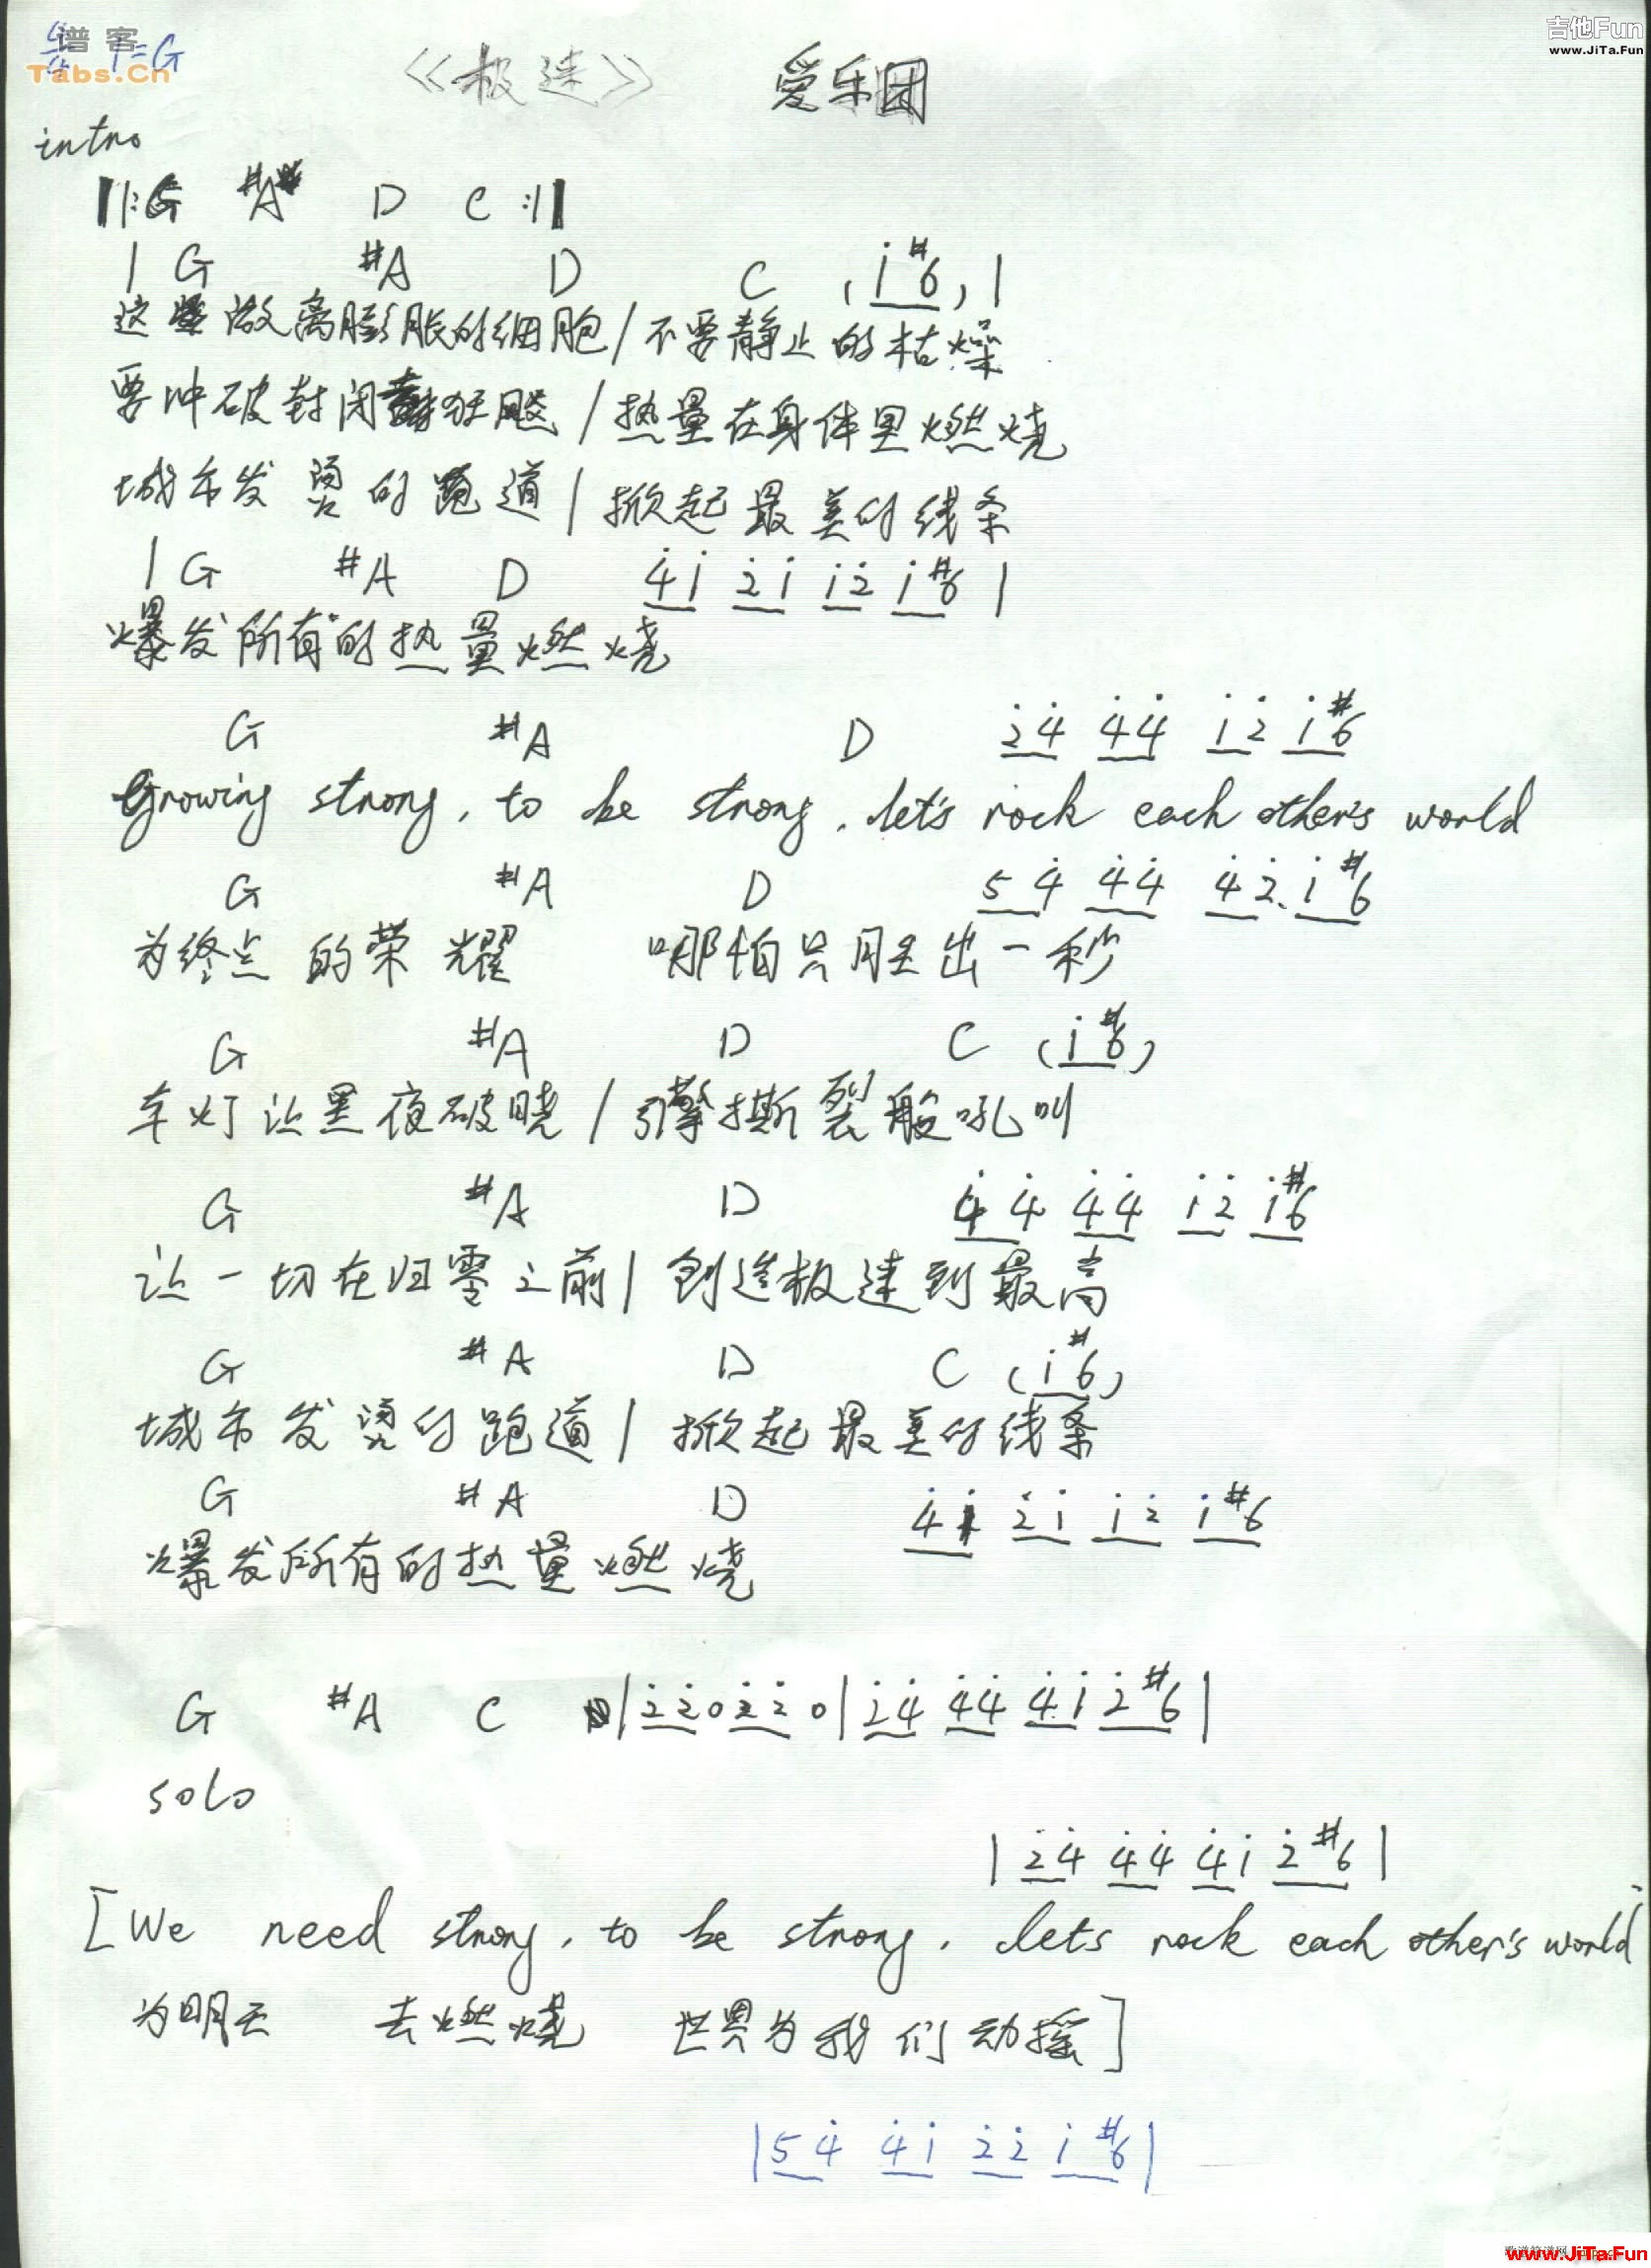 谱客 1=G
Tabs.Cn
吉他Fun
www.JiTa.Fun
《极速》 爱乐团
intro
‖: G #A D C :‖
| G #A D C (i #6) |
这些微离膨胀的细胞/不要静止的枯燥
要冲破封闭 狂飚/热量在身体里燃烧
城市发烫的跑道/掀起最美的线条
| G #A D 4̇i 2̇i i2̇ i#6 |
爆发所有的热量燃烧
G #A D 2̇4̇ 4̇4̇ i2̇ i#6
Growing strong, to be strong, let's rock each other's world
G #A D 54̇ 4̇4̇ 4̇2̇ i#6
为终点的荣耀 哪怕只胜出一秒
G #A D C (i#6)
车灯让黑夜破晓/引擎撕裂般吼叫
G #A D 4̇4̇ 4̇4̇ i2̇ i#6
让一切在归零之前/创造极速到最高
G #A D C (i#6)
城市发烫的跑道/掀起最美的线条
G #A D 4̇i 2̇i i2̇ i#6
爆发所有的热量燃烧
G #A C |2̇2̇0 2̇2̇0|2̇4̇ 4̇4̇ 4̇i 2̇#6|
solo
|2̇4̇ 4̇4̇ 4̇i 2̇#6|
[We need strong, to be strong, lets rock each other's world
为明天 去燃烧 世界为我们动摇]
|54̇ 4̇i 2̇2̇ i#6|
www.JiTa.Fun